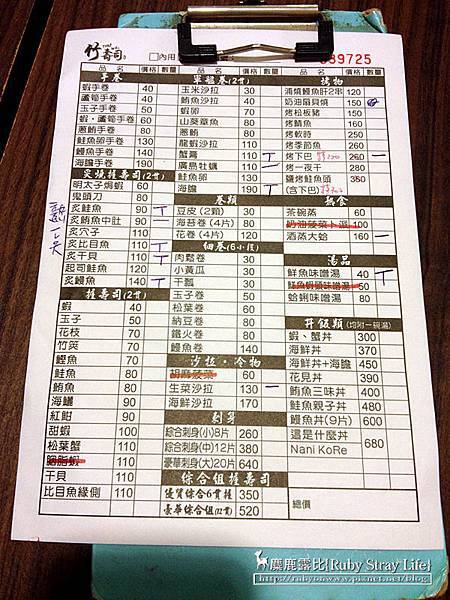 竹壽司
□內用
089725
手卷 價格 數量
蝦手卷 40
蘆筍手卷 40
玉子手卷 50
蝦•蘆筍手卷 60
蔥鮪手卷 80
鮭魚卵手卷 130
鰻魚手卷 130
海膽手卷 190
炙燒握壽司(2貫)
明太子焗蝦 60
鬼頭刀 80
炙鮭魚 90
炙鮪魚中肚 90
炙穴子 110
炙比目魚 110
炙干貝 110
起司鮭魚 120
炙鰻魚 140
握壽司(2貫)
蝦 40
玉子 50
花枝 70
竹筴 70
鰹魚 70
鮭魚 80
鮪魚 80
海鱺 90
紅魽 90
甜蝦 100
松葉蟹 110
胭脂蝦 110
干貝 110
比目魚緣側 110
軍艦卷(2貫) 價格 數量
玉米沙拉 30
鮪魚沙拉 30
蝦卵 70
山葵章魚 80
蔥鮪 80
龍蝦沙拉 110
蟹膏 110
廣島牡蠣 110
鮭魚卵 130
海膽 190
卷類
豆皮(2顆) 30
海苔卷(4片) 80
花卷(4片) 120
細卷(6小段)
肉鬆卷 30
小黃瓜 30
干瓢 30
玉子卷 50
松葉卷 60
納豆卷 80
鐵火卷 80
鰻魚卷 90
沙拉•冷物
胡麻菠菜 60
生菜沙拉 130
海鮮沙拉 170
刺身
綜合刺身(小)8片 260
綜合刺身(中)12片 380
豪華刺身(大)20片 640
綜合組握壽司
優質綜合6貫握 350
豪華綜合組(12貫) 520
烤物 價格 數量
浦燒鰻魚肝2串 120
奶油扇貝燒 150
烤柏板豬 150
烤鯖魚 160
烤軟時 250
烤季節魚 250
烤下巴 260
烤一夜干 280
鹽烤鮭魚頭 350
(含下巴)
熟食
茶碗蒸 60
100
酒蒸大蛤 160
湯品
鮮魚味噌湯 40
鮭魚蝦頭味噌湯 50
蛤蜊味噌湯 80
丼飯類(均附一碗湯)
蝦、蟹丼 300
海鮮丼 370
海鮮丼+海膽 450
花見丼 390
鮪魚三味丼 400
鮭魚親子丼 480
鰻魚丼(9片) 600
這是什麼丼 680
Nani KoRe
總價
麋鹿露比{Ruby Stray Life}
http://rubytawww.pixnet.net/blog